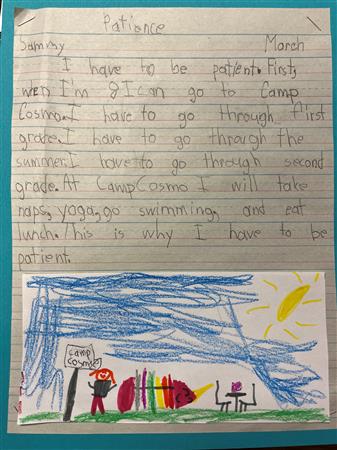 Patience
Sammy March
I have to be patient. First,
when I'm 8 I can go to Camp
Cosmo. I have to go through first
grade. I have to go through the
summer. I have to go through second
grade. At Camp Cosmo I will take
naps, yoga, go swimming, and eat
lunch. This is why I have to be
patient.
Camp
Cosmo